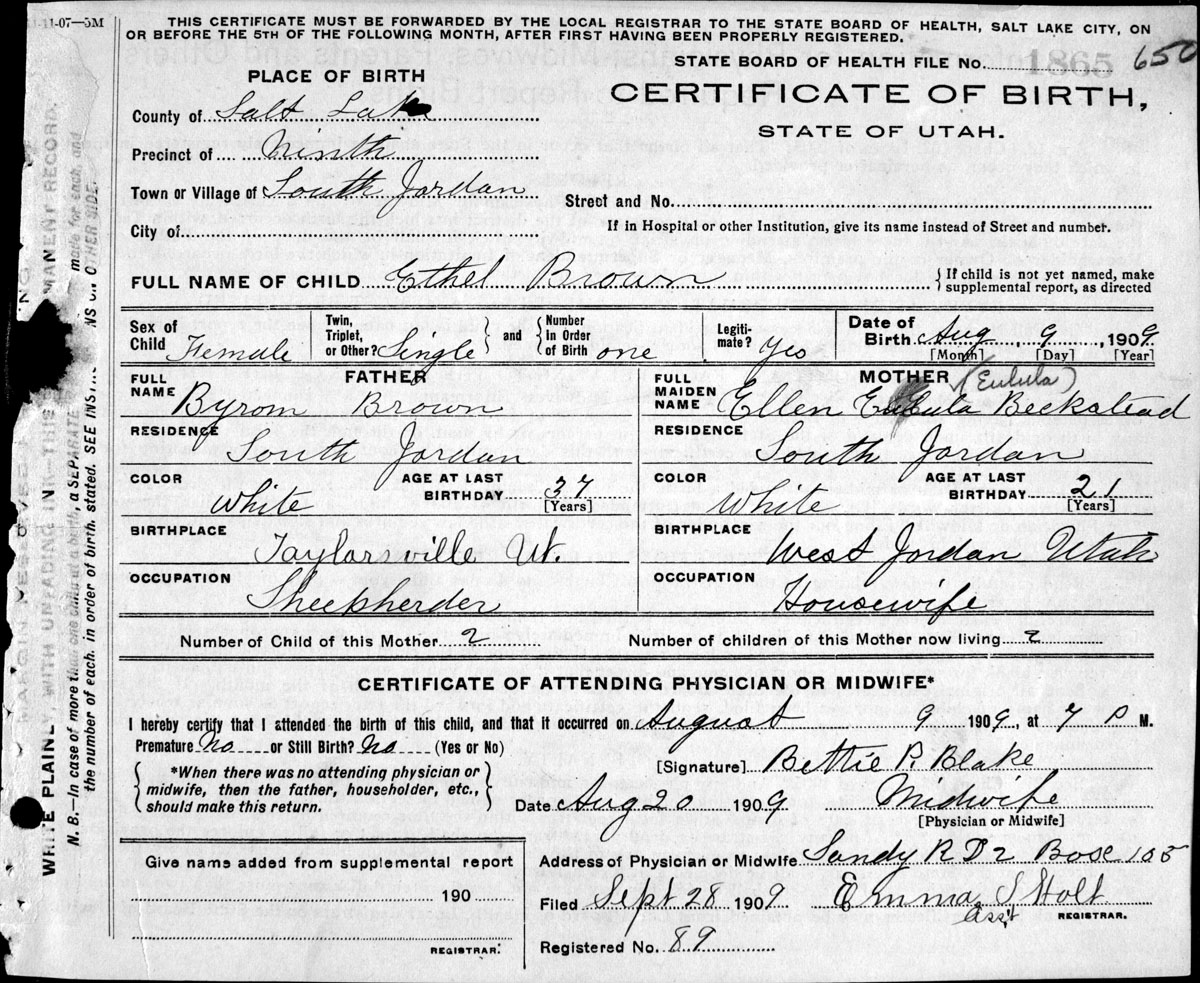 11-11-07—5M
THIS CERTIFICATE MUST BE FORWARDED BY THE LOCAL REGISTRAR TO THE STATE BOARD OF HEALTH, SALT LAKE CITY, ON
OR BEFORE THE 5TH OF THE FOLLOWING MONTH, AFTER FIRST HAVING BEEN PROPERLY REGISTERED.
STATE BOARD OF HEALTH FILE No. 1865 650
PLACE OF BIRTH
CERTIFICATE OF BIRTH,
STATE OF UTAH.
County of Salt Lake
Precinct of Ninth
Town or Village of South Jordan
Street and No.
City of
If in Hospital or other Institution, give its name instead of Street and number.
FULL NAME OF CHILD Ethel Brown { If child is not yet named, make
supplemental report, as directed
Sex of Child Female
Twin, Triplet, or Other? Single } and { Number In Order of Birth one
Legiti-mate? Yes
Date of Birth Aug, 9, 1909
[Month] [Day] [Year]
FATHER
FULL NAME Byrom Brown
RESIDENCE South Jordan
COLOR White AGE AT LAST BIRTHDAY 37 [Years]
BIRTHPLACE Taylorsville Ut.
OCCUPATION Sheepherder
MOTHER (Eulula)
FULL MAIDEN NAME Ellen Eulula Beckstead
RESIDENCE South Jordan
COLOR White AGE AT LAST BIRTHDAY 21 [Years]
BIRTHPLACE West Jordan Utah
OCCUPATION Housewife
Number of Child of this Mother 2 Number of children of this Mother now living 2
CERTIFICATE OF ATTENDING PHYSICIAN OR MIDWIFE*
I hereby certify that I attended the birth of this child, and that it occurred on August 9 1909, at 7 P M.
Premature No or Still Birth? No (Yes or No)
{ *When there was no attending physician or
midwife, then the father, householder, etc.,
should make this return. }
[Signature] Bettie R. Blake
Date Aug 20 1909 Midwife
[Physician or Midwife]
Give name added from supplemental report
190
REGISTRAR.
Address of Physician or Midwife Sandy R D 2 Box 105
Filed Sept 28 1909 Emma S Holt
Ass't REGISTRAR.
Registered No. 89
WRITE PLAINLY, WITH UNFADING INK—THIS MANENT RECORD.
N. B.—In case of more than one child at a birth, a SEPARATE made for each, and
the number of each, in order of birth, stated. SEE INSTR NS ON OTHER SIDE.